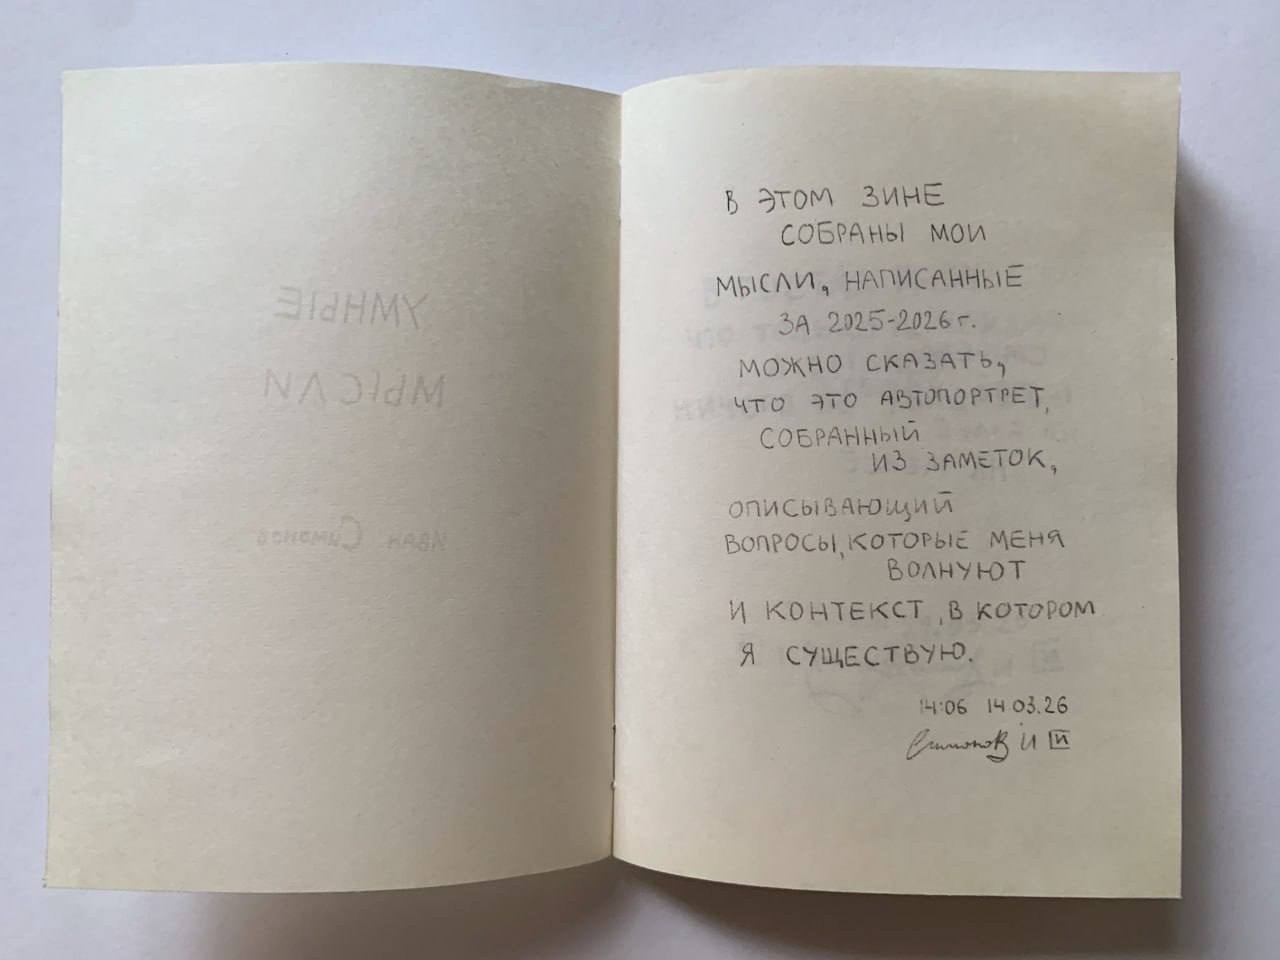 УМНЫЕ
МЫСЛИ
Иван Симонов
В ЭТОМ ЗИНЕ
СОБРАНЫ МОИ
МЫСЛИ, НАПИСАННЫЕ
ЗА 2025-2026 г.
МОЖНО СКАЗАТЬ,
ЧТО ЭТО АВТОПОРТРЕТ,
СОБРАННЫЙ
ИЗ ЗАМЕТОК,
ОПИСЫВАЮЩИЙ
ВОПРОСЫ, КОТОРЫЕ МЕНЯ
ВОЛНУЮТ
И КОНТЕКСТ, В КОТОРОМ
Я СУЩЕСТВУЮ.
14:06 14.03.26
Симонов И И